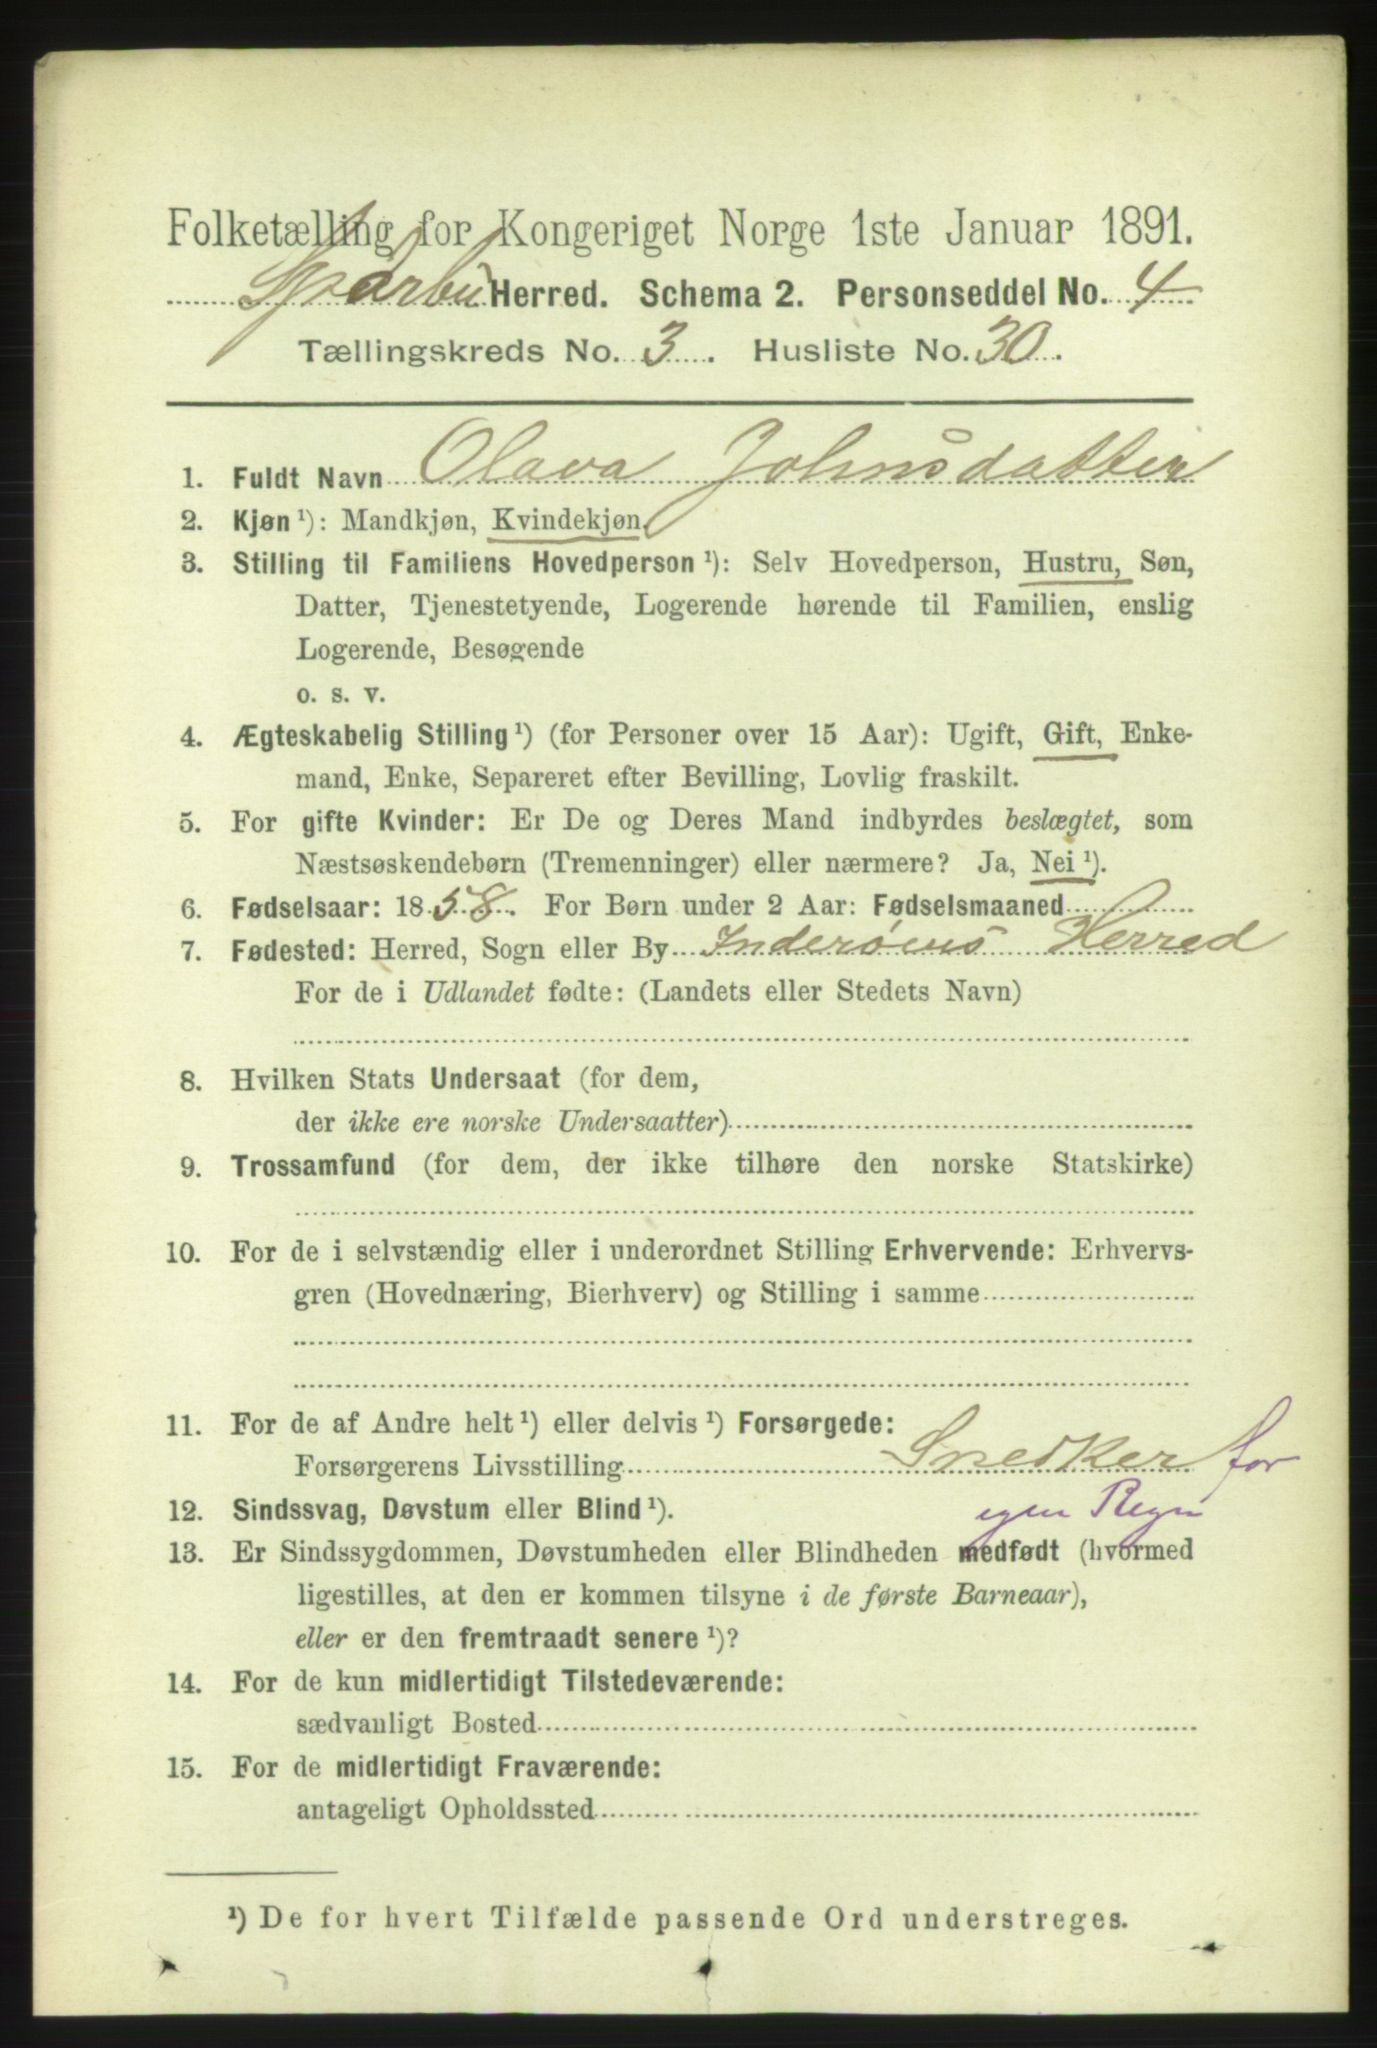 Folketælling for Kongeriget Norge 1ste Januar 1891.
Sparbu Herred. Schema 2. Personseddel No. 4
Tællingskreds No. 3. Husliste No. 30.
1. Fuldt Navn Olava Johnsdatter
2. Kjøn ¹): Mandkjøn, Kvindekjøn.
3. Stilling til Familiens Hovedperson ¹): Selv Hovedperson, Hustru, Søn,
Datter, Tjenestetyende, Logerende hørende til Familien, enslig
Logerende, Besøgende
o. s. v.
4. Ægteskabelig Stilling ¹) (for Personer over 15 Aar): Ugift, Gift, Enke-
mand, Enke, Separeret efter Bevilling, Lovlig fraskilt.
5. For gifte Kvinder: Er De og Deres Mand indbyrdes beslægtet, som
Næstsøskendebørn (Tremenninger) eller nærmere? Ja, Nei ¹).
6. Fødselsaar: 1858. For Børn under 2 Aar: Fødselsmaaned
7. Fødested: Herred, Sogn eller By Inderøens Herred
For de i Udlandet fødte: (Landets eller Stedets Navn)
8. Hvilken Stats Undersaat (for dem,
der ikke ere norske Undersaatter)
9. Trossamfund (for dem, der ikke tilhøre den norske Statskirke)
10. For de i selvstændig eller i underordnet Stilling Erhvervende: Erhvervs-
gren (Hovednæring, Bierhverv) og Stilling i samme
11. For de af Andre helt ¹) eller delvis ¹) Forsørgede:
Forsørgerens Livsstilling Snedker for
egen Regn
12. Sindssvag, Døvstum eller Blind ¹).
13. Er Sindssygdommen, Døvstumheden eller Blindheden medfødt (hvormed
ligestilles, at den er kommen tilsyne i de første Barneaar),
eller er den fremtraadt senere ¹)?
14. For de kun midlertidigt Tilstedeværende:
sædvanligt Bosted
15. For de midlertidigt Fraværende:
antageligt Opholdssted
¹) De for hvert Tilfælde passende Ord understreges.